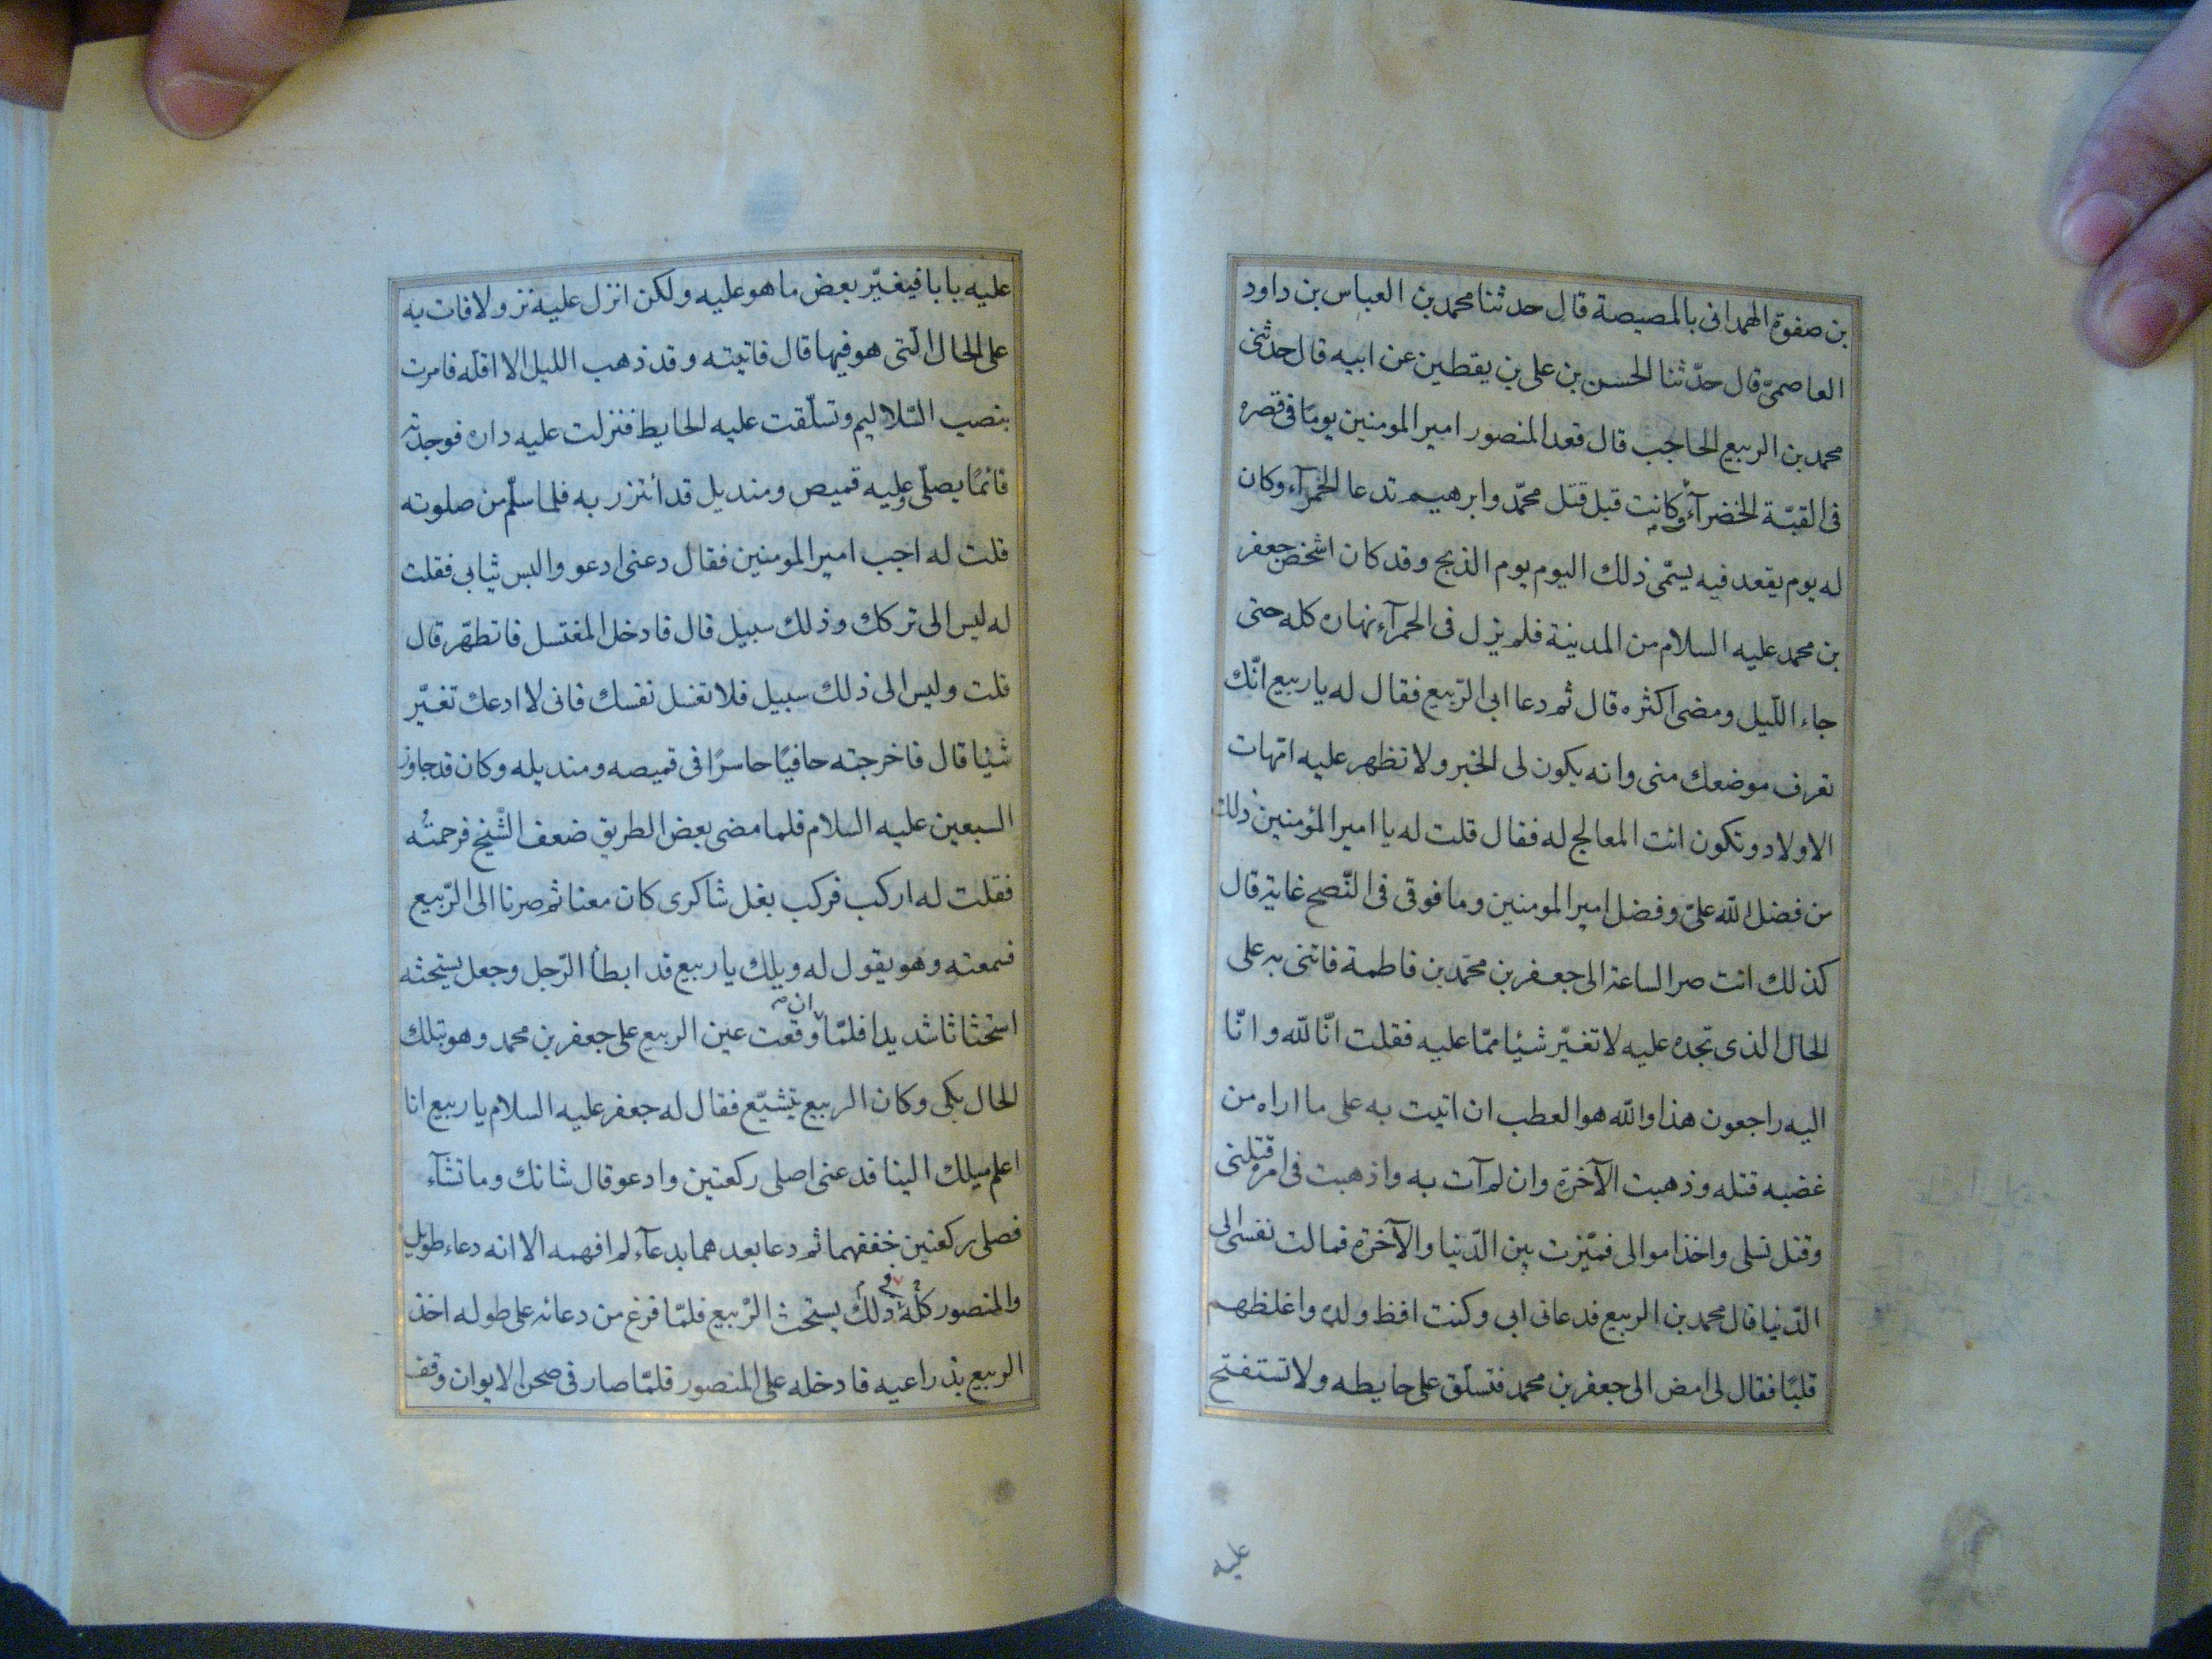 بن صفوة الهمدانى بالمصيصة قال حدثنا محمد بن العباس بن داود
العاصمىّ قال حدّثنا الحسن بن على بن يقطين عن ابيه قال حدثنى
محمد بن الربيع الحاجب قال قعد المنصور امير المومنين يومًا فى قصره
فى القبّة الخضرآء وكانت قبل قتل محمّد وابرهيم تدعا الحمرآء وكان
له يوم يقعد فيه يسمّى ذلك اليوم يوم الذبح وقد كان اشخص جعفر
بن محمد عليه السلام من المدينة فلم يزل فى الحمرآء نهاره كله حتى
جاء اللّيل ومضى اكثره قال ثم دعا ابى الرّبيع فقال له يا ربيع انّك
تعرف موضعك منى وانه يكون لى الخبر ولا تظهر عليه امّهات
الاولاد وتكون انت المعالج له فقال قلت له يا امير المؤمنين ذلك
من فضل الله علىّ وفضل امير المومنين وما فوقى فى النّصح غاية قال
كذلك انت صر الساعة الى جعفر بن محمّد بن فاطمة فاتنى به على
الحال الذى تجده عليه لا تغيّر شيئا ممّا عليه فقلت انّا لله وانّا
اليه راجعون هذا والله هو العطب ان اتيت به على ما اراه من
غضبه قتله وذهبت الآخرة وان لم آت به واذهبت فى امره قتلنى
وقتل نسلى واخذ اموالى فميّزت بين الدّنيا والآخرة فمالت نفسى الى
الدّنيا قال محمد بن الربيع فدعانى ابى وكنت افظ ولده واغلظهم
قلبًا فقال لى امض الى جعفر بن محمد فتسلّق على حايطه ولا تستفتح
عليه
عليه بابا فيغيّر بعض ما هو عليه ولكن انزل عليه نزولا فات به
على الحال الّتى هو فيها قال فاتيته وقد ذهب الليل الا اقلّه فامرت
بنصب السّلاليم وتسلّقت عليه الحايط فنزلت عليه داره فوجدته
قائمًا يصلّى وعليه قميص ومنديل قد أئتزر به فلما سلّم من صلوته
قلت له اجب امير المومنين فقال دعنى ادعو والبس ثيابى فقلت
له ليس الى تركك وذلك سبيل قال فادخل المغتسل فاتطهّر قال
قلت وليس الى ذلك سبيل فلا تغسل نفسك فانى لا ادعك تغيّر
شيئا قال فاخرجته حافيًا حاسرًا فى قميصه ومنديله وكان قد جاوز
السبعين عليه السلام فلما مضى بعض الطريق ضعف الشّيخ فرحمته
فقلت له اركب فركب بغل شاكرى كان معنا ثم صرنا الى الرّبيع
فسمعته وهو يقول له ويلك يا ربيع قد ابطأ الرّجل وجعل يستحثه
استحثاثا شديدا فلمّا ان وقعت عين الربيع على جعفر بن محمد وهو بتلك
الحال بكى وكان الربيع يتشيّع فقال له جعفر عليه السلام يا ربيع انا
اعلم ميلك الينا فدعنى اصلى ركعتين وادعو قال شانك وما تشآء
فصلى ركعتين خففهما ثم دعا بعدهما بدعآء لم افهمه الا انه دعاء طويل
والمنصور فى ذلك كلّه يستحث الرّبيع فلمّا فرغ من دعائه على طوله اخذ
الربيع بذراعيه فادخله على المنصور فلمّا صار فى صحن الايوان وقف